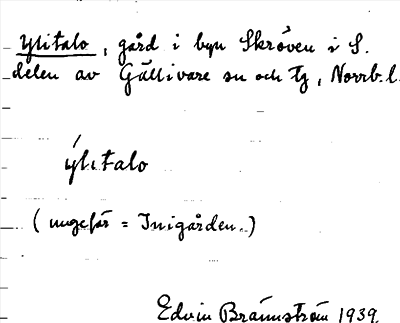 Ylitalo, gård i byn Skröven i S.
delen av Gällivare sn och tg, Norrb. l.
ýlitalo
(ungefär = Inigården.)
Edvin Brännström 1939